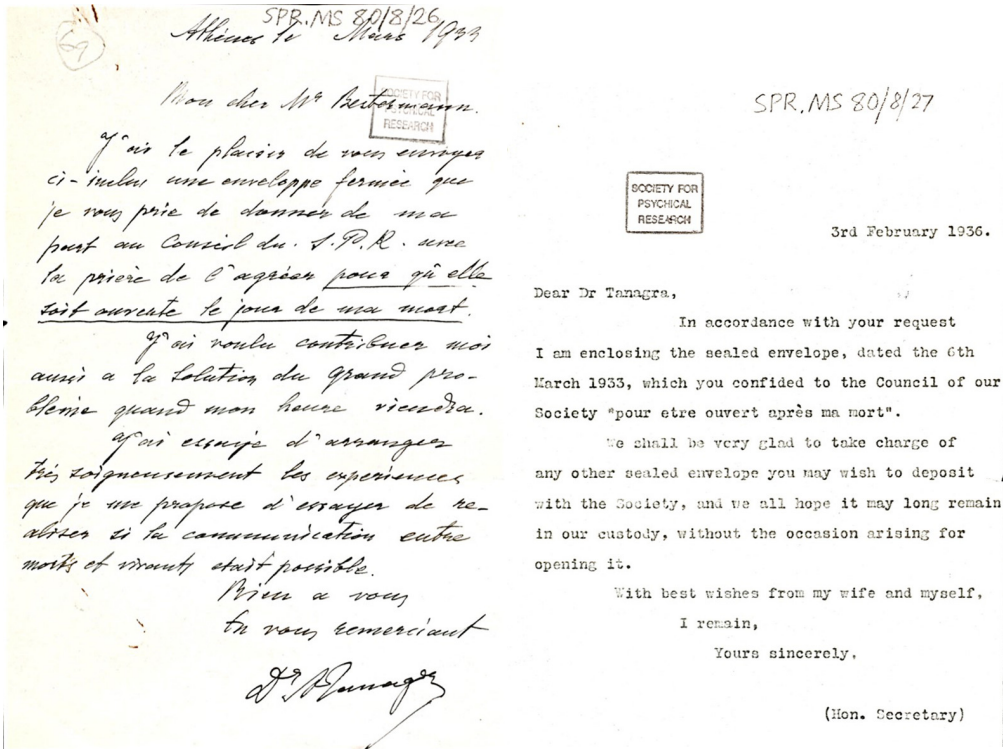 SPR.MS 80/8/26
Athènes le Mars 1933
Mon cher Mr Besterman.
SOCIETY FOR
PSYCHICAL
RESEARCH
J'ais le plaisir de vous envoyer
ci-inclus une enveloppe fermée que
je vous prie de donner de ma
part au Conseil du S.P.R. avec
la prière de l'agréer pour qu'elle
soit ouverte le jour de ma mort.
J'ai voulu contribuer moi
aussi a la solution du grand pro-
blème quand mon heure viendra.
J'ai essayé d'arranger
très soigneusement les experiences
que je me propose d'essayer de re-
aliser si la communication entre
morts et vivants etait possible.
Bien a vous
En vous remerciant
Dr A Tanagra
SPR.MS 80/8/27
SOCIETY FOR
PSYCHICAL
RESEARCH
3rd February 1936.
Dear Dr Tanagra,
In accordance with your request
I am enclosing the sealed envelope, dated the 6th
March 1933, which you confided to the Council of our
Society "pour etre ouvert après ma mort".
We shall be very glad to take charge of
any other sealed envelope you may wish to deposit
with the Society, and we all hope it may long remain
in our custody, without the occasion arising for
opening it.
With best wishes from my wife and myself,
I remain,
Yours sincerely,
(Hon. Secretary)